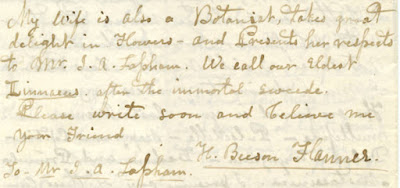 My Wife is also a Botanist, takes great
delight in Flowers - and Presents her respects
to Mr. I. A. Lapham. We call our Eldest
Linnaeus after the immortal Swede.
Please write soon and believe me
Your Friend
H. Beeson Flanner.
To Mr I. A. Lapham.